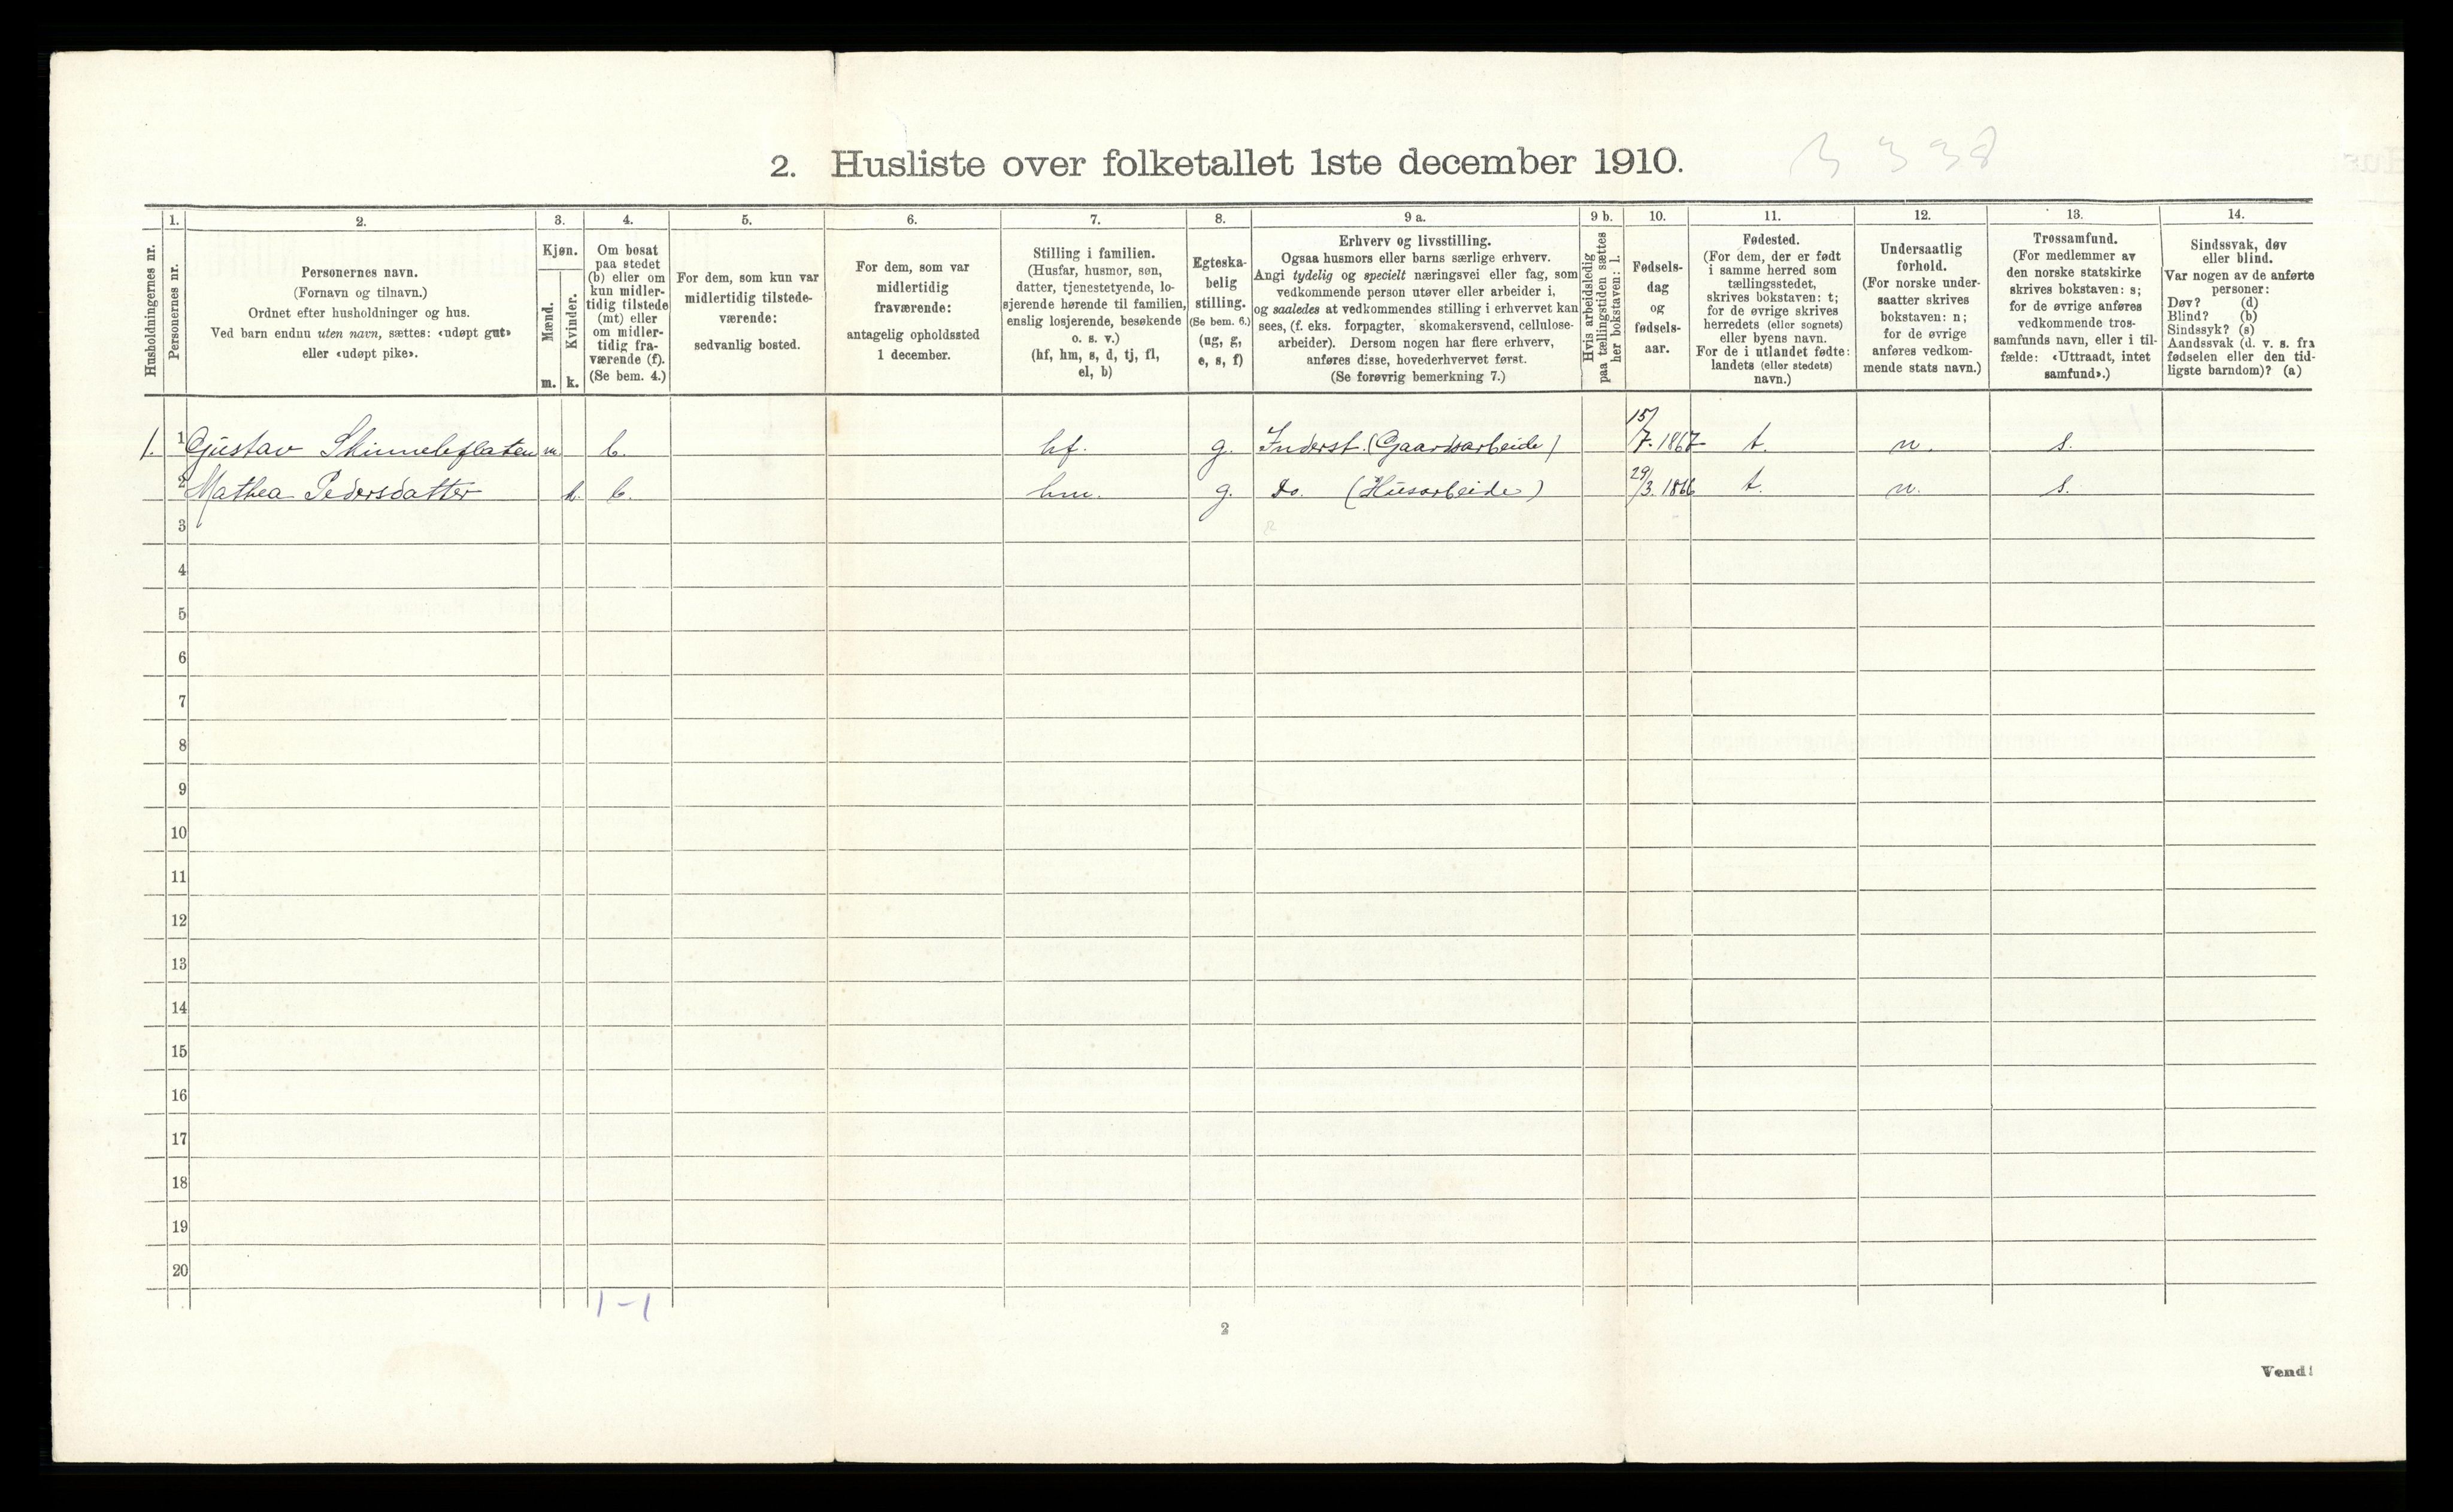 2. Husliste over folketallet 1ste december 1910.
3 3 38
Husholdningernes nr.
1.
Personernes nr.
2.
Personernes navn.
(Fornavn og tilnavn.)
Ordnet efter husholdninger og hus.
Ved barn endnu uten navn, sættes: «udøpt gut»
eller «udøpt pike».
3.
Kjøn.
Mænd.
m.
Kvinder.
k.
4.
Om bosat
paa stedet
(b) eller om
kun midler-
tidig tilstede
(mt) eller
om midler-
tidig fra-
værende (f).
(Se bem. 4.)
5.
For dem, som kun var
midlertidig tilstede-
værende:
sedvanlig bosted.
6.
For dem, som var
midlertidig
fraværende:
antagelig opholdssted
1 december.
7.
Stilling i familien.
(Husfar, husmor, søn,
datter, tjenestetyende, lo-
sjerende hørende til familien,
enslig losjerende, besøkende
o. s. v.)
(hf, hm, s, d, tj, fl,
el, b)
8.
Egteska-
belig
stilling.
(Se bem. 6.)
(ug, g,
e, s, f)
9 a.
Erhverv og livsstilling.
Ogsaa husmors eller barns særlige erhverv.
Angi tydelig og specielt næringsvei eller fag, som
vedkommende person utøver eller arbeider i,
og saaledes at vedkommendes stilling i erhvervet kan
sees, (f. eks. forpagter, skomakersvend, cellulose-
arbeider). Dersom nogen har flere erhverv,
anføres disse, hovederhvervet først.
(Se forøvrig bemerkning 7.)
9 b.
Hvis arbeidsledig
paa tællingstiden sættes
her bokstaven: l.
10.
Fødsels-
dag
og
fødsels-
aar.
11.
Fødested.
(For dem, der er født
i samme herred som
tællingsstedet,
skrives bokstaven: t;
for de øvrige skrives
herredets (eller sognets)
eller byens navn.
For de i utlandet fødte:
landets (eller stedets)
navn.)
12.
Undersaatlig
forhold.
(For norske under-
saatter skrives
bokstaven: n;
for de øvrige
anføres vedkom-
mende stats navn.)
13.
Trossamfund.
(For medlemmer av
den norske statskirke
skrives bokstaven: s;
for de øvrige anføres
vedkommende tros-
samfunds navn, eller i til-
fælde: «Uttraadt, intet
samfund».)
14.
Sindssvak, døv
eller blind.
Var nogen av de anførte
personer:
Døv? (d)
Blind? (b)
Sindssyk? (s)
Aandssvak (d. v. s. fra
fødselen eller den tid-
ligste barndom)? (a)
1. 1 Gustav Skinneleflaten m. b. hf. g. Inderst. (Gaardsarbeide) 15/7. 1867 t. n. s.
2 Mathea Pedersdatter k. b. hm. g. Do. (Husarbeide) 29/3. 1866 t. n. s.
3
4
5
6
7
8
9
10
11
12
13
14
15
16
17
18
19
20
1 - 1
2
Vend!